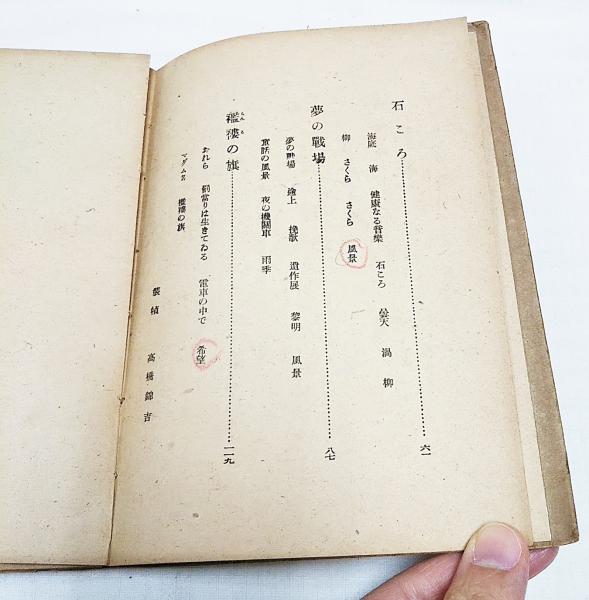 石ころ……………六一
海底 海 健康なる音樂 石ころ 曇天 渦 柳
柳 さくら さくら 風景
夢の戰場……………八七
夢の戰場 途上 挽歌 遺作展 黎明 風景
童話の風景 夜の機關車 雨季
襤褸の旗……………一一九
おれら 罰當りは生きてゐる 電車の中で 希望
マダムX 襤褸の旗
裝幀 高橋錦吉